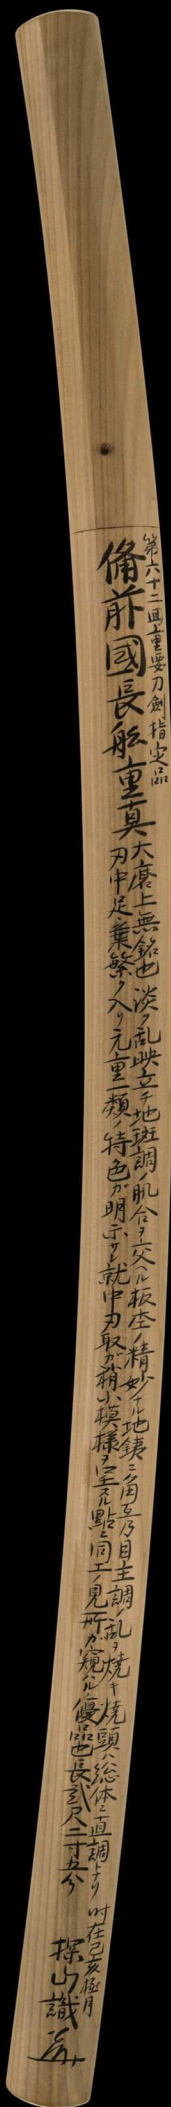 第六十二回重要刀剣指定品
備前國長船重真
大磨上無銘也 淡ク乱映立チ地斑調ノ肌合ヲ交ヘル板杢ノ精妙ナル地鉄ニ角互乃目主調ノ乱ヲ焼キ焼頭ハ総体ニ直調ナリ
刃中足葉繁ク入リ元重一類ノ特色ガ明示サレ就中刃取ガ稍小模様ヲ呈スル點ニ同工ノ見所ガ窺ハルル優品也長貮尺二寸五分
时在己亥極月
探山識